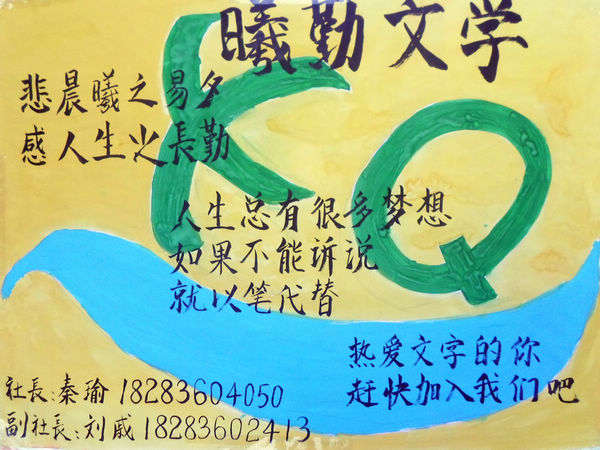 曦勤文学
悲晨曦之易夕
感人生之長勤
人生总有很多梦想
如果不能诉说
就以笔代替
热爱文字的你
赶快加入我们吧
社長:秦瑜 18283604050
副社長:刘戚 18283602413
KQ